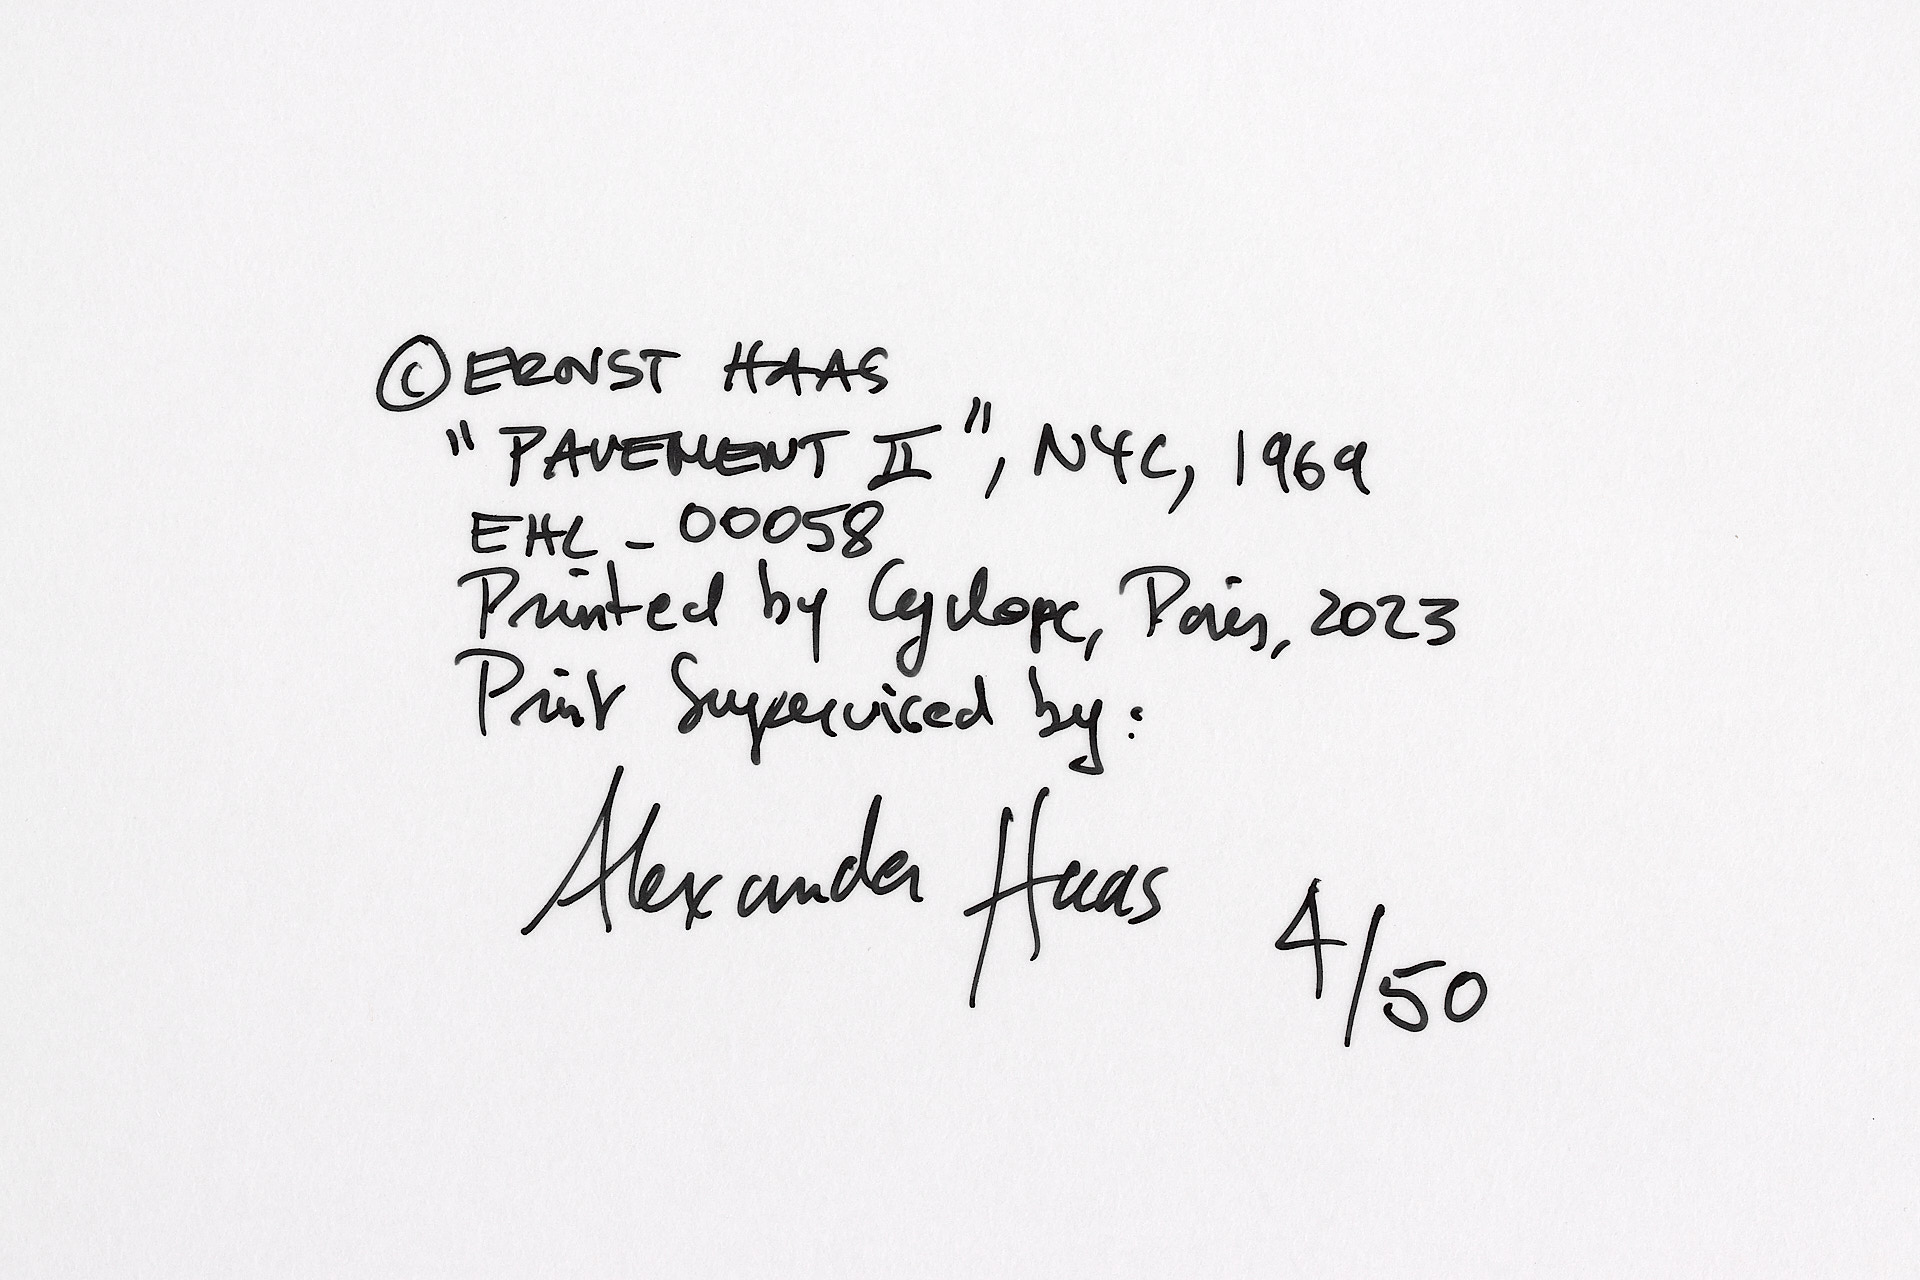 © ERNST HAAS
"PAVEMENT II", NYC, 1969
EHL_00058
Printed by Cyclope, Paris, 2023
Print Supervised by:
Alexander Haas 4/50